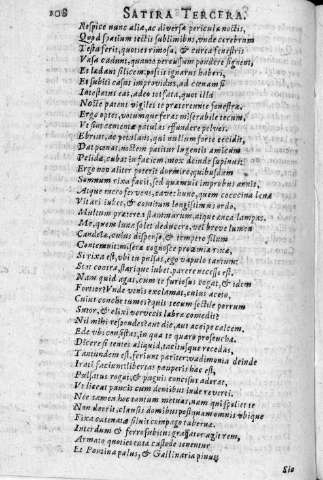 208 SATIRA TERCERA.
Respice nunc alia, ac diversa pericula noctis,
Quod spatium tectis sublimibus, unde cerebrum
Testa ferit, quoties rimosa, & curta fenestris
Vasa cadunt, quanto percussum pondere signent,
Et lædant silicem: possis ignavus haberi,
Et subiti casus improvidus, ad cœnam si
Intestatus eas, adeo tot fata, quot illa
Nocte patent vigiles te prætereunte fenestræ.
Ergo optes, votumque feras miserabile tecum,
Ut sint contentæ patulas effundere pelves.
Ebrius, ac petulans, qui nullum forte cecidit,
Dat pœnas, noctem patitur lugentis amicum
Pelidæ, cubat in faciem, mox deinde supinus:
Ergo non aliter poterit dormire, quibusdam
Somnum rixa facit, sed quamvis improbus annis,
Atque mero fervens, cavet hunc, quem coccina læna
Vitari iubet, & comitum longissimus ordo,
Multum præterea flammarum, atque ænea lampas.
Me, quem luna solet deducere, vel breve lumen
Candelæ, cuius dispenso, & tempero filum
Contemnit: miseræ cognosce prœmia rixæ,
Si rixa est, ubi tu pulsas, ego vapulo tantum:
Stat contra, starique iubet, parere necesse est.
Nam quid agas, cum te furiosus cogat, & idem
Fortior? Unde venis exclamat, cuius aceto,
Cuius conche tumes? quis tecum sectile porrum
Sutor, & elixi vervecis labra comedit?
Nil mihi respondes? aut dic, aut accipe calcem.
Ede ubi consistas, in qua te quæro proseucha.
Dicere si tentes aliquid, tacitusque recedas,
Tantundem est, feriunt pariter: vadimonia deinde
Irati faciunt: libertas pauperis hæc est,
Pulsatus rogat, & pugnis concisus adorat,
Ut liceat paucis cum dentibus inde reverti.
Nec tamen hoc tantum metuas, nam qui spoliet te
Non deerit, clausis domibus postquam omnis ubique
Fixa catenatæ siluit compago tabernæ.
Interdum & ferro subitus grassator agit rem,
Armato quoties tutæ custode tenentur
Et Pontina palus, & Gallinaria pinus
Sic